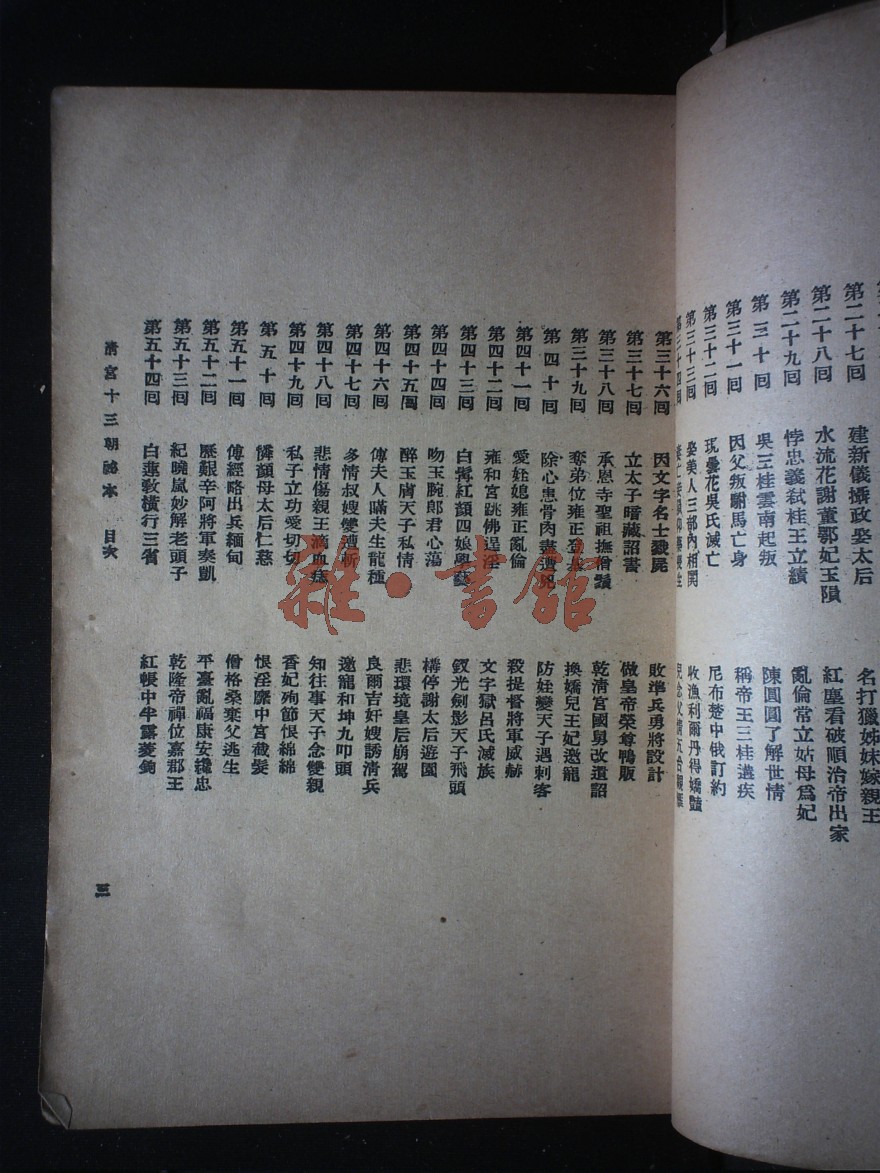 第二十七回 建新儀攝政娶太后 名打獵姊妹嫁親王
第二十八回 水流花謝董鄂妃玉隕 紅塵看破順治帝出家
第二十九回 悖忠義弒桂王立績 亂倫常立姑母為妃
第三十回 吳三桂雲南起叛 陳圓圓了解世情
第三十一回 因父叛駙馬亡身 稱帝王三桂遘疾
第三十二回 現曇花吳氏滅亡 尼布楚中俄訂約
第三十三回 娶美人三部內相鬨 收漁利爾丹得嬌豔
第三十四回
第三十六回 因文字名士戮屍 敗準兵勇將設計
第三十七回 立太子暗藏詔書 做皇帝榮尊鴨販
第三十八回 承恩寺聖祖撫僧鬚 乾清宮國舅改遺詔
第三十九回 奪弟位雍正登基 換嬌兒王妃邀寵
第四十回 除心患骨肉盡遭兇 防姙變天子遇刺客
第四十一回 愛姪媳雍正亂倫 殺提督將軍威赫
第四十二回 雍和宮跳佛逞淫 文字獄呂氏滅族
第四十三回 白髯紅顏四娘學藝 釵光劍影天子飛頭
第四十四回 吻玉腕郎君心蕩 構停謝太后遊園
第四十五回 醉玉膚天子私情 悲環境皇后崩駕
第四十六回 傅夫人瞞夫生龍種 良爾吉奸嫂誘清兵
第四十七回 多情叔嫂雙遭斬 邀寵和坤九叩頭
第四十八回 悲情傷親王滴血痣 知往事天子念雙親
第四十九回 私子立功愛切切 香妃殉節恨綿綿
第五十回 憐顏母太后仁慈 恨淫靡中宮截髮
第五十一回 傅經略出兵緬甸 僧格桑棄父逃生
第五十二回 歷艱辛阿將軍奏凱 平臺亂福康安纔忠
第五十三回 紀曉嵐妙解老頭子 乾隆帝禪位嘉郡王
第五十四回 白蓮敎橫行三省 紅帳中半露菱鉤
清宮十三朝祕本 目次
三
雜·書館